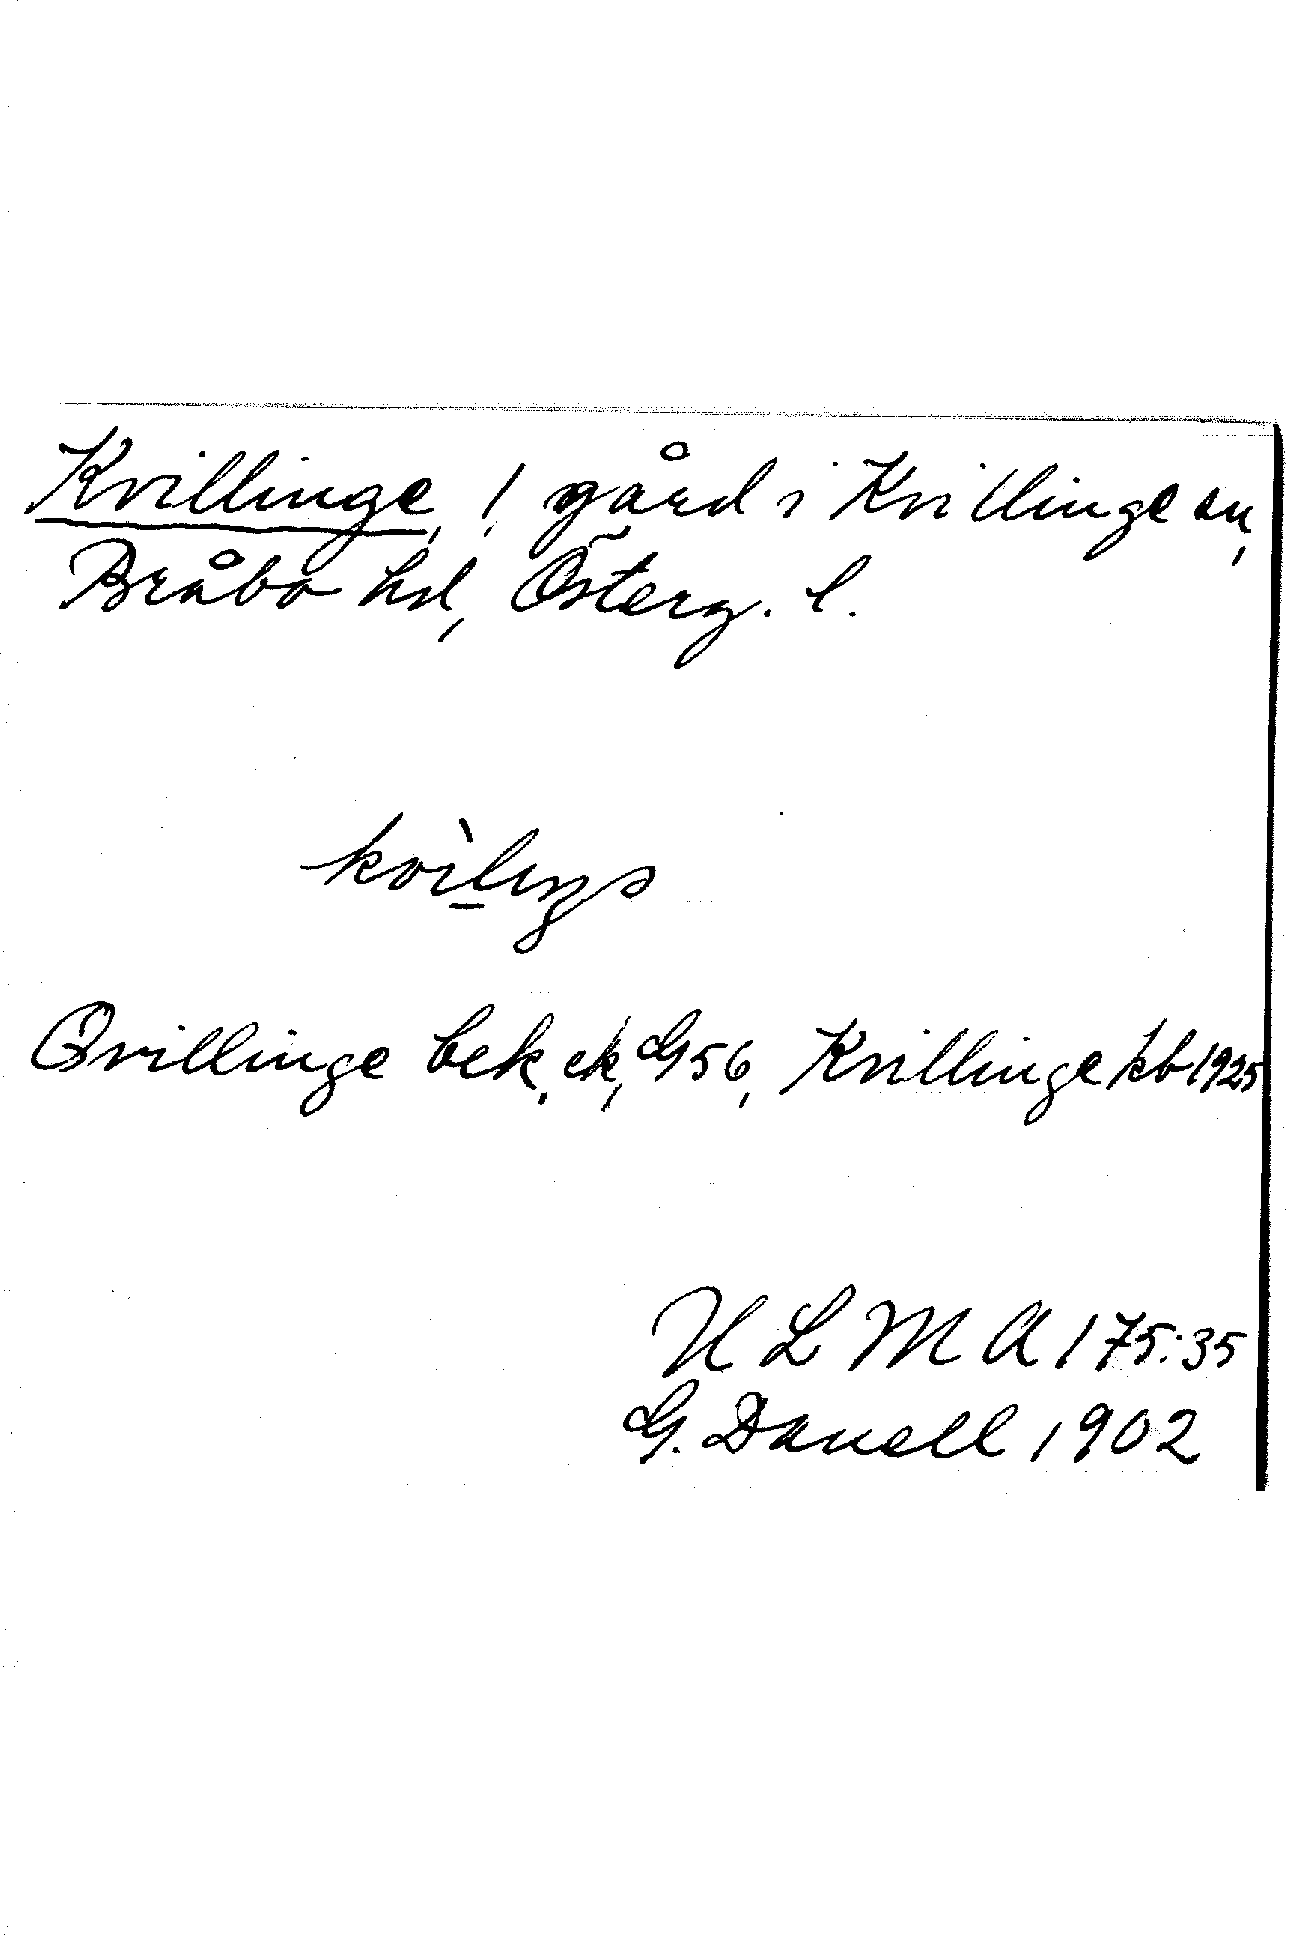 Kvillinge, 1 gård i Kvillinge sn,
Bråbo hd, Österg. l.
kvìlıŋə
Qvillinge bek. ek, G56, Kvillinge kb 1925
ULMA 175:35
G. Danell 1902